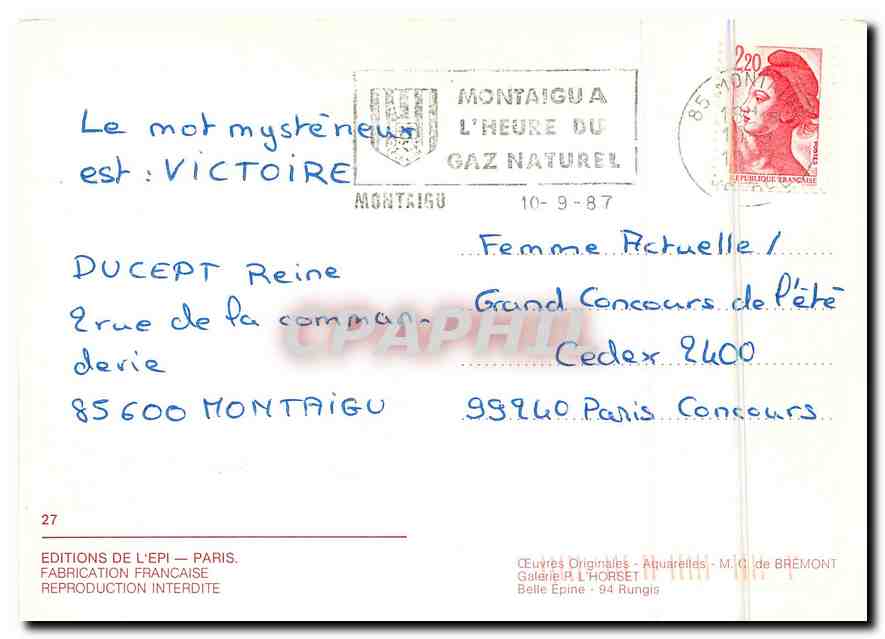 Le mot mystérieux
est : VICTOIRE
MONTAIGU A
L'HEURE DU
GAZ NATUREL
MONTAIGU 10-9-87
85 MONT
2,20
POSTES
REPUBLIQUE FRANÇAISE
DUCEPT Reine
2 rue de la comman-
derie
85600 MONTAIGU
Femme Actuelle /
Grand Concours de l'été
Cedex 2400
99240 Paris Concours
CPAPHIL
27
EDITIONS DE L'EPI — PARIS.
FABRICATION FRANÇAISE
REPRODUCTION INTERDITE
Œuvres Originales - Aquarelles - M. C. de BRÉMONT
Galerie P. L'HORSET
Belle Epine - 94 Rungis